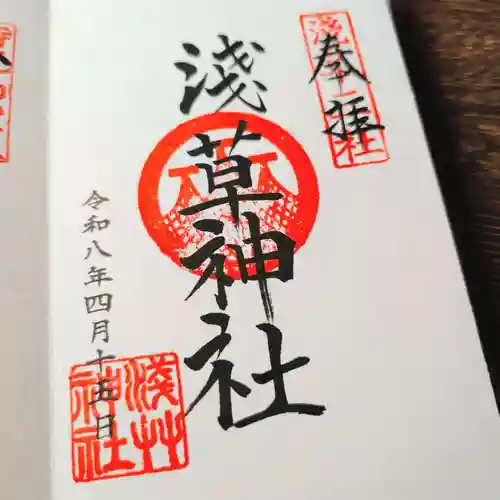 奉拝
淺草神社
令和八年四月十五日
淺草神社